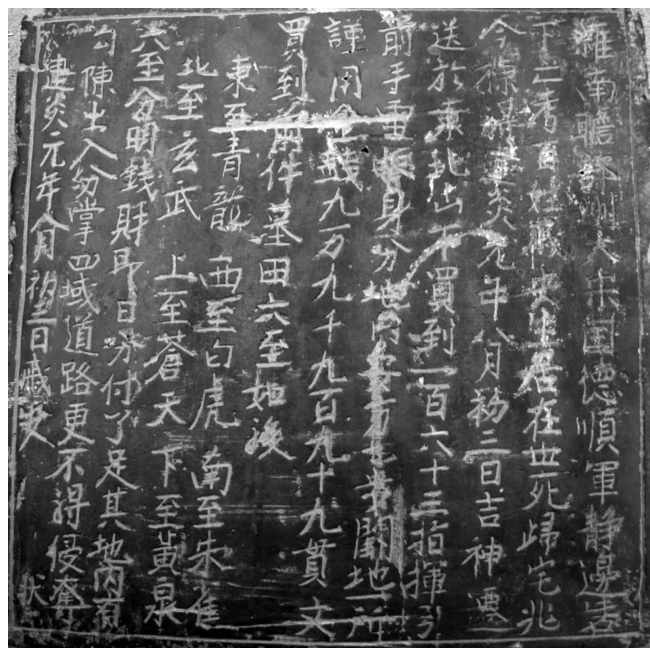 維南贍部洲大宋国德順軍静邊寨
下亡考百姓戚 生居在世死歸宅兆
今 建炎元年八月初三日吉神遷
送於東北山下買到一百六十三指揮引
前手 身分地内 闊地一所
謹用金錢九万九千九百九十九貫文
買到前件墓田六至如後
東至青龍 西至白虎 南至朱雀
北至玄武 上至蒼天 下至黄泉
六至分明錢財即日分付了足其地内有
勾陳出入分掌四域道路更不得侵奪
建炎元年八月初三日戚